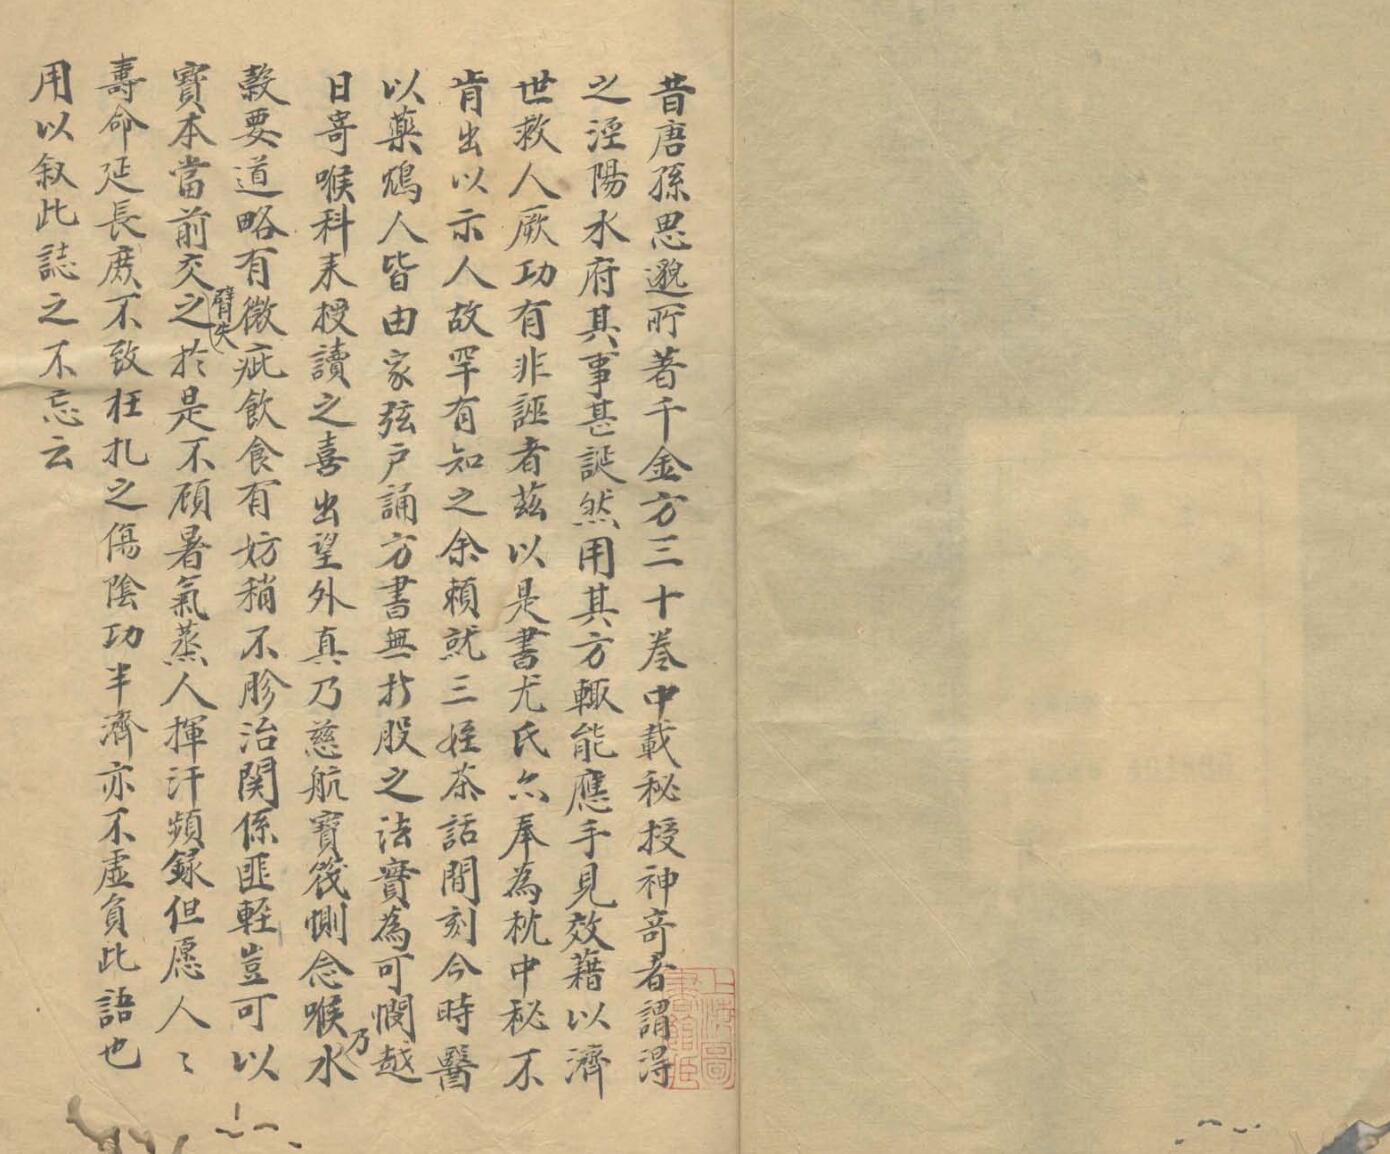 昔唐孫思邈所著千金方三十卷中載秘授神奇者謂得
之涇陽水府其事甚誕然用其方輒能應手見效藉以濟
世救人厥功有非誣者茲以是書尤氏亦奉為枕中秘不
肯出以示人故罕有知之余賴就三姪茶話間刻今時醫
以藥鴆人皆由家弦户誦方書無折股之法實為可憫越
日寄喉科来授讀之喜出望外真乃慈航寶筏惻念喉乃水
穀要道略有微疵飲食有妨稍不胗治関係匪輕豈可以
寶本當前交臂失之於是不顧暑氣蒸人揮汗頻録但愿人〻
壽命延長庶不致枉扎之傷陰功半濟亦不虚負此語也
用以叙此誌之不忘云
上海圖
書館藏